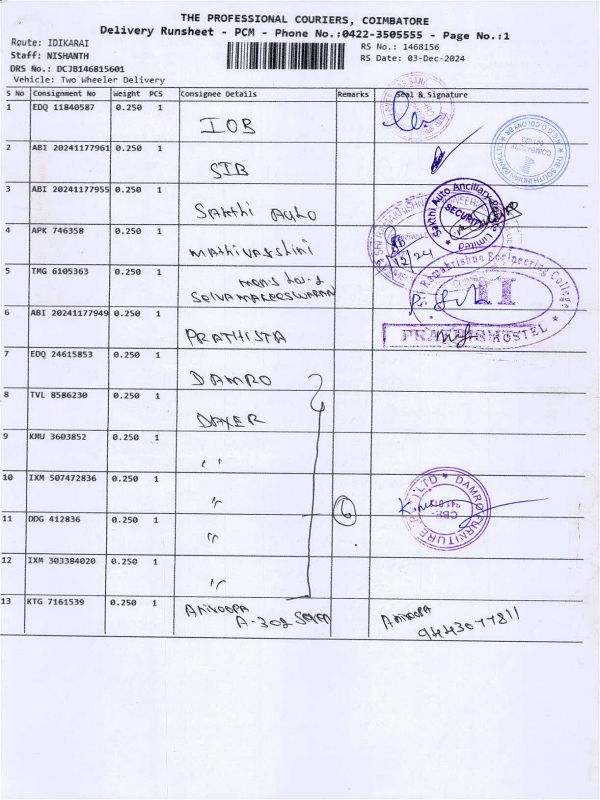 THE PROFESSIONAL COURIERS, COIMBATORE
Delivery Runsheet - PCM - Phone No.:0422-3505555 - Page No.:1
Route: IDIKARAI
RS No.: 1468156
Staff: NISHANTH
RS Date: 03-Dec-2024
DRS No.: DCJB146815601
Vehicle: Two Wheeler Delivery
S No Consignment No Weight PCS Consignee Details Remarks Seal & Signature
1 EDQ 11840587 0.250 1 IOB
2 ABI 20241177961 0.250 1 SIB
THE SOUTH INDIAN BANK LTD
3 ABI 20241177955 0.250 1 Sakthi Auto
Sakthi Auto Ancillary Private Limited
SECURITY
4 APK 746358 0.250 1 Mathivarshini
5 TMG 6105363 0.250 1 mens
SELVAMAREESWARAN
Sri Ramakrishna Engineering College
II
HOSTEL
6 ABI 20241177949 0.250 1 PRATHISTA
7 EDQ 24615853 0.250 1 DAMRO
8 TVL 8586230 0.250 1
9 KMU 3603852 0.250 1 "
10 IXM 507472836 0.250 1 "
DAMRO FURNITURE LTD
11 DDG 412836 0.250 1 " 6
12 IXM 303384020 0.250 1 "
13 KTG 7161539 0.250 1 Anoopa Anoopa
A-302 9443077811